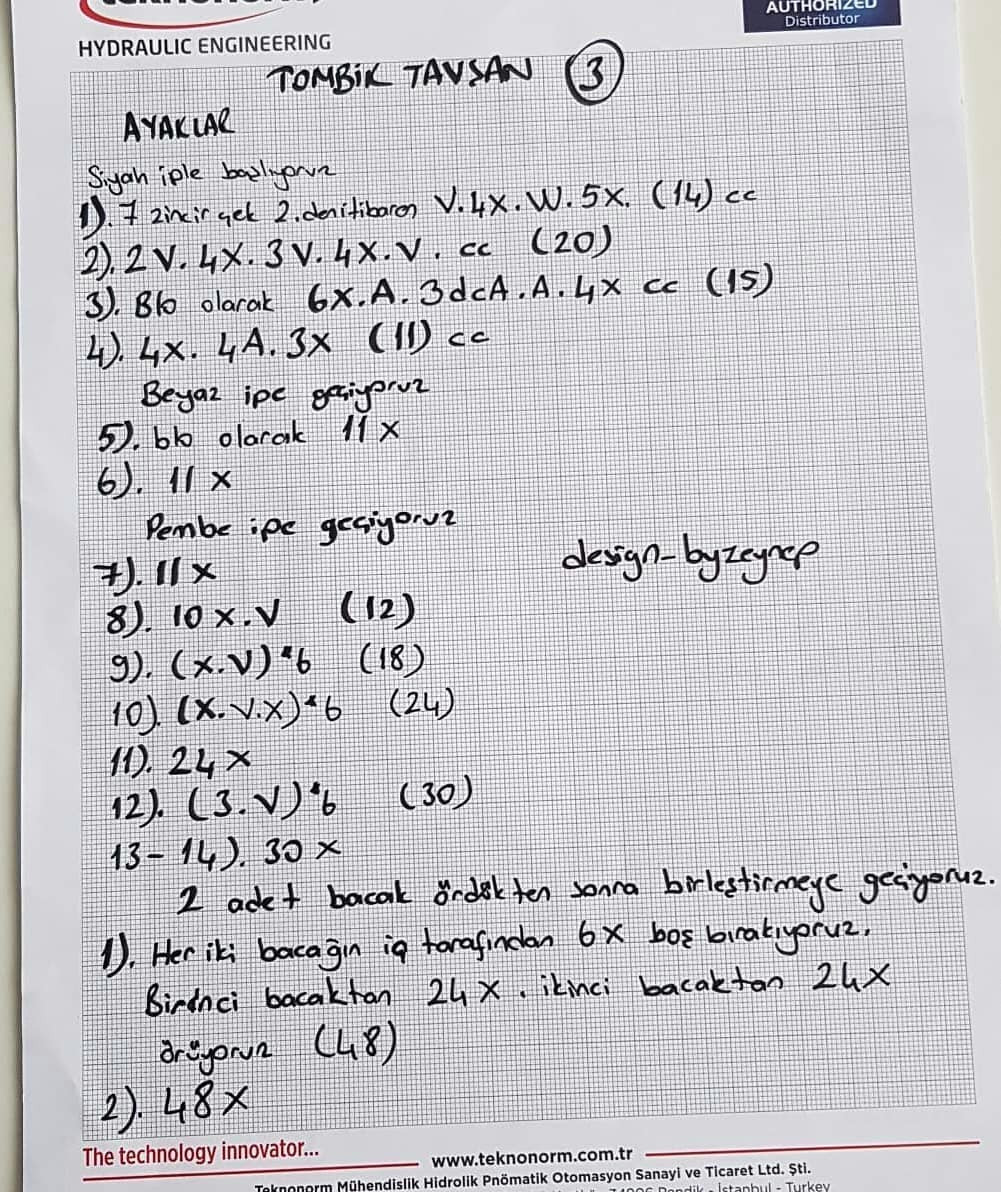 AUTHORIZED
Distributor
HYDRAULIC ENGINEERING
TOMBİK TAVŞAN 3
AYAKLAR
Siyah iple başlıyoruz
1). 7 zincir çek 2.den itibaren V.4X.W.5X. (14) cc
2). 2V. 4X. 3V. 4X. V. cc (20)
3). Blo olarak 6X.A. 3dcA.A.4X cc (15)
4). 4X. 4A. 3X (11) cc
Beyaz ipe geçiyoruz
5). blo olarak 11 X
6). 11 X
Pembe ipe geçiyoruz
7). 11 X
design-byzeynep
8). 10 X.V (12)
9). (X.V)*6 (18)
10). (X.V.X)*6 (24)
11). 24 X
12). (3.V)*6 (30)
13-14). 30 X
2 adet bacak ördükten sonra birleştirmeye geçiyoruz.
1). Her iki bacağın iç tarafından 6X boş bırakıyoruz.
Birinci bacaktan 24 X. ikinci bacaktan 24X
örüyoruz (48)
2). 48X
The technology innovator...
www.teknonorm.com.tr
Teknonorm Mühendislik Hidrolik Pnömatik Otomasyon Sanayi ve Ticaret Ltd. Şti.
İstanbul - Turkey